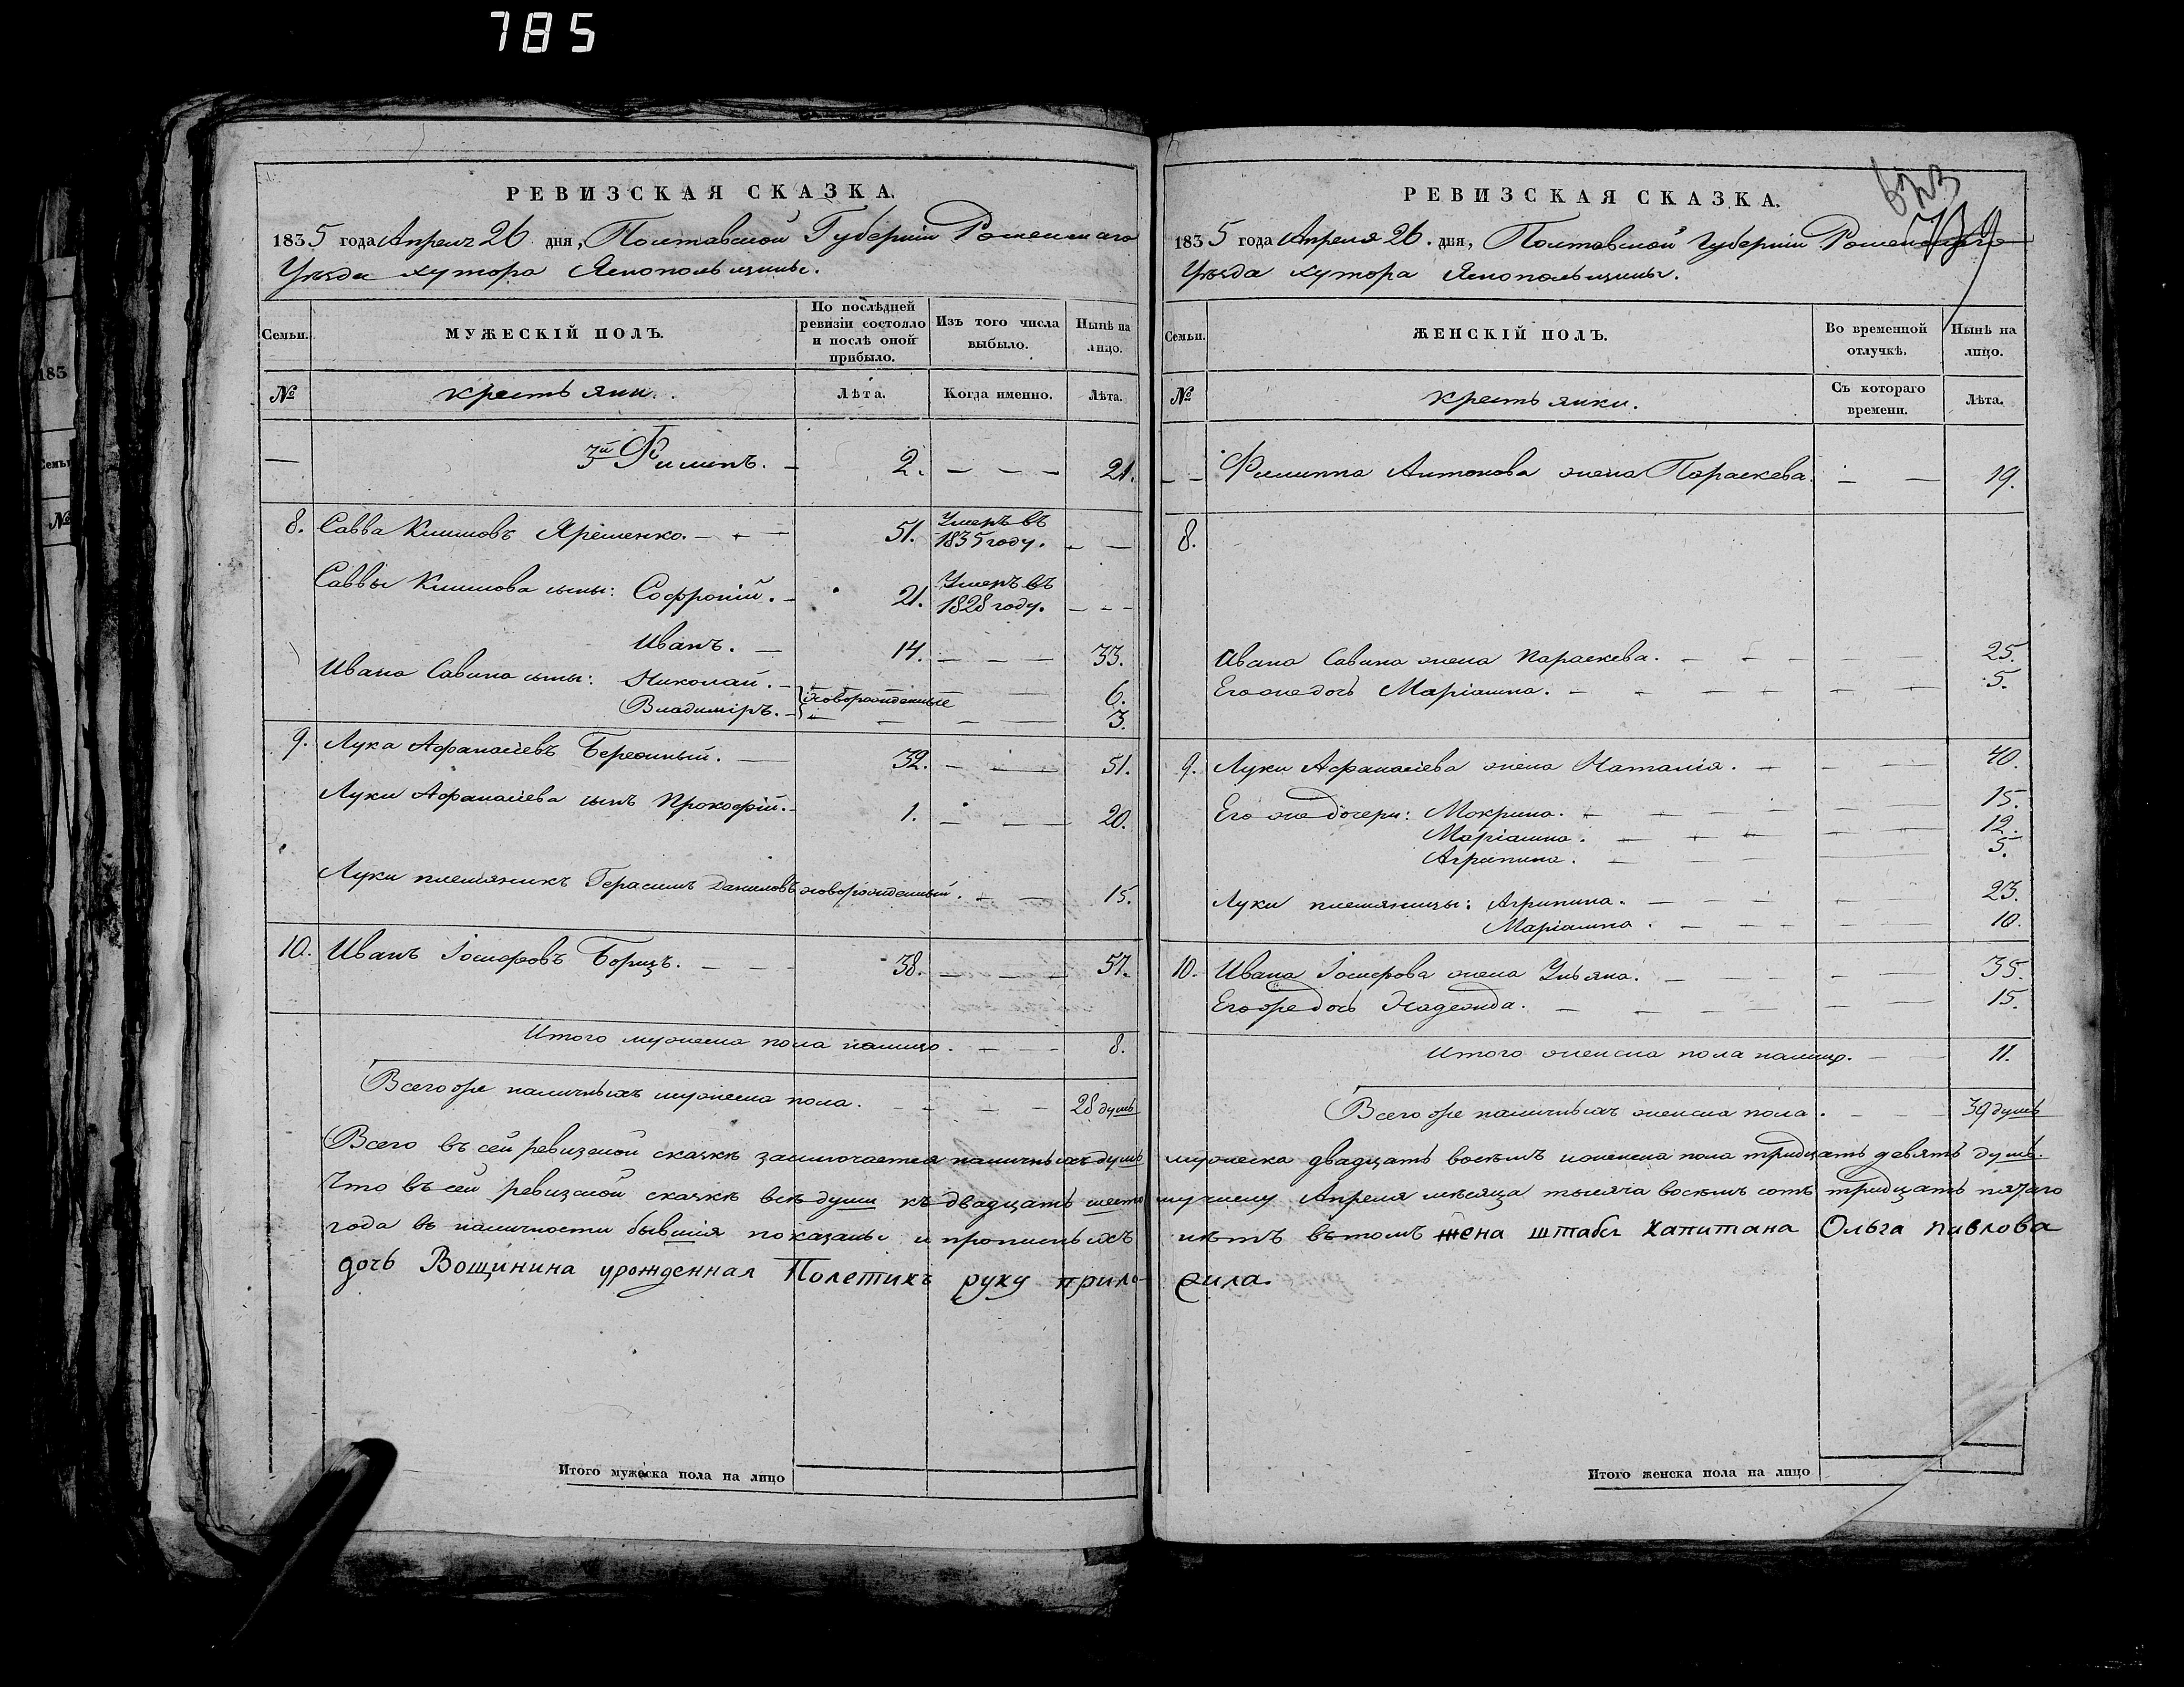 785
РЕВИЗСКАЯ СКАЗКА.
1835 года Апреля 26 дня, Полтавской Губерніи Роменскаго
Уѣзда хутора Яснопольщины.
Семьи. МУЖЕСКІЙ ПОЛЪ. По послѣдней ревизіи состояло и послѣ оной прибыло. Изъ того числа выбыло. Нынѣ на лицо.
№ крестьяни. Лѣта. Когда именно. Лѣта.
— 3й Филипъ. — 2. — — — 21.
8. Савва Климовъ Яременко. — — — 51. Умеръ въ 1835 году. — —
Саввы Климова сыны: Софроній. — 21. Умеръ въ 1828 году. — — —
Иванъ. — 14. — — — 33.
Ивана Савина сыны: Николай. — новорожденные — — 6.
Владиміръ. — — — — — 3.
9. Лука Афанасіевъ Бережный. — 32. — — — 51.
Луки Афанасіева сынъ Прокофій. — 1. — — — 20.
Луки племяникъ Герасимъ Даниловъ новорожденный. — — 15.
10. Иванъ Іосифовъ Борщъ. — — — 38. — — — 57.
Итого мужеска пола налицо. — — — 8.
Всего же наличныхъ мужеска пола. — — — 28 душъ
Всего въ сей ревизской сказкѣ заключается наличныхъ душъ
Что въ сей ревизской сказкѣ всѣ души къ двадцать шесто
года въ наличности бывшія показаны и прописныхъ
дочь Вощинина урожденная Полетикъ руку прило-
Итого мужеска пола на лицо
183
Семьи
№
РЕВИЗСКАЯ СКАЗКА.
1835 года Апреля 26. дня, Полтавской Губерніи Роменскаго
Уѣзда хутора Яснопольщины.
Семьи. ЖЕНСКІЙ ПОЛЪ. Во временной отлучкѣ. Нынѣ на лицо.
№ крестьянки. Съ котораго времени. Лѣта.
— — Филиппа Антонова жена Параскева. — — 19.
8.
Ивана Савина жена Параскева. — — — — — 25.
Его же дочь Маріанна. — — — — — — 5.
9. Луки Афанасіева жена Наталія. — — — 40.
Его же дочери: Мокрина. — — — — — 15.
Маріанна. — — — — — 12.
Агрипина. — — — 5.
Луки племяницы: Агрипина. — — — — 23.
Маріанна. — — — — — 10.
10. Ивана Іосифова жена Ульяна. — — — — — 35.
Его же дочь Надежда. — — — — — — 15.
Итого женска пола налицо. — — 11.
Всего же наличныхъ женска пола. — — — 39 душъ
мужеска двадцать восемъ и женска пола тридцать девять душъ.
му числу Апреля мѣсяца тысяча восемъ сотъ тридцать пятаго
нѣтъ въ томъ жена штабсъ капитана Ольга павлова
жила.
Итого женска пола на лицо